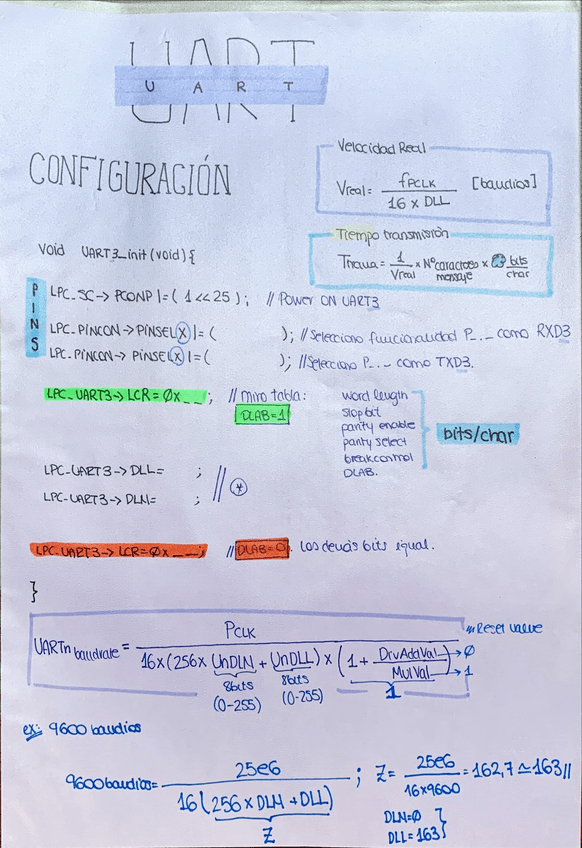 UART
U A R T
CONFIGURACIÓN
Velocidad Real
Vreal = fPCLK / 16 x DLL [baudios]
Tiempo transmisión
= 1 / Vreal x Nº caracteres / mensaje x bits / char
Void UART3_init(void){
PINS
LPC_SC->PCONP |= (1<<25); // Power ON UART3
LPC_PINCON->PINSELX |= ( ); // Selecciono funcionalidad P_._ como RXD3
LPC_PINCON->PINSELX |= ( ); // Selecciono P_._ como TXD3.
LPC_UART3->LCR = 0x__; // miro tabla:
DLAB=1
word length
stop bit
parity enable
parity select
break control
DLAB.
bits/char
LPC_UART3->DLL= ;
LPC_UART3->DLM= ; // *
LPC_UART3->LCR=0x__; // DLAB=0. Los demás bits igual.
}
UARTn baudrate = PCLK / 16x(256x UnDLM + UnDLL) x (1 + DivAddVal / MulVal)
Reset value
→ 0
→ 1
8bits 8bits 1
(0-255) (0-255)
ex: 9600 baudios
9600 baudios = 25e6 / 16(256 x DLM + DLL) ; Z = 25e6 / 16x9600 = 162,7 ≃ 163//
Z
DLM=0
DLL=163